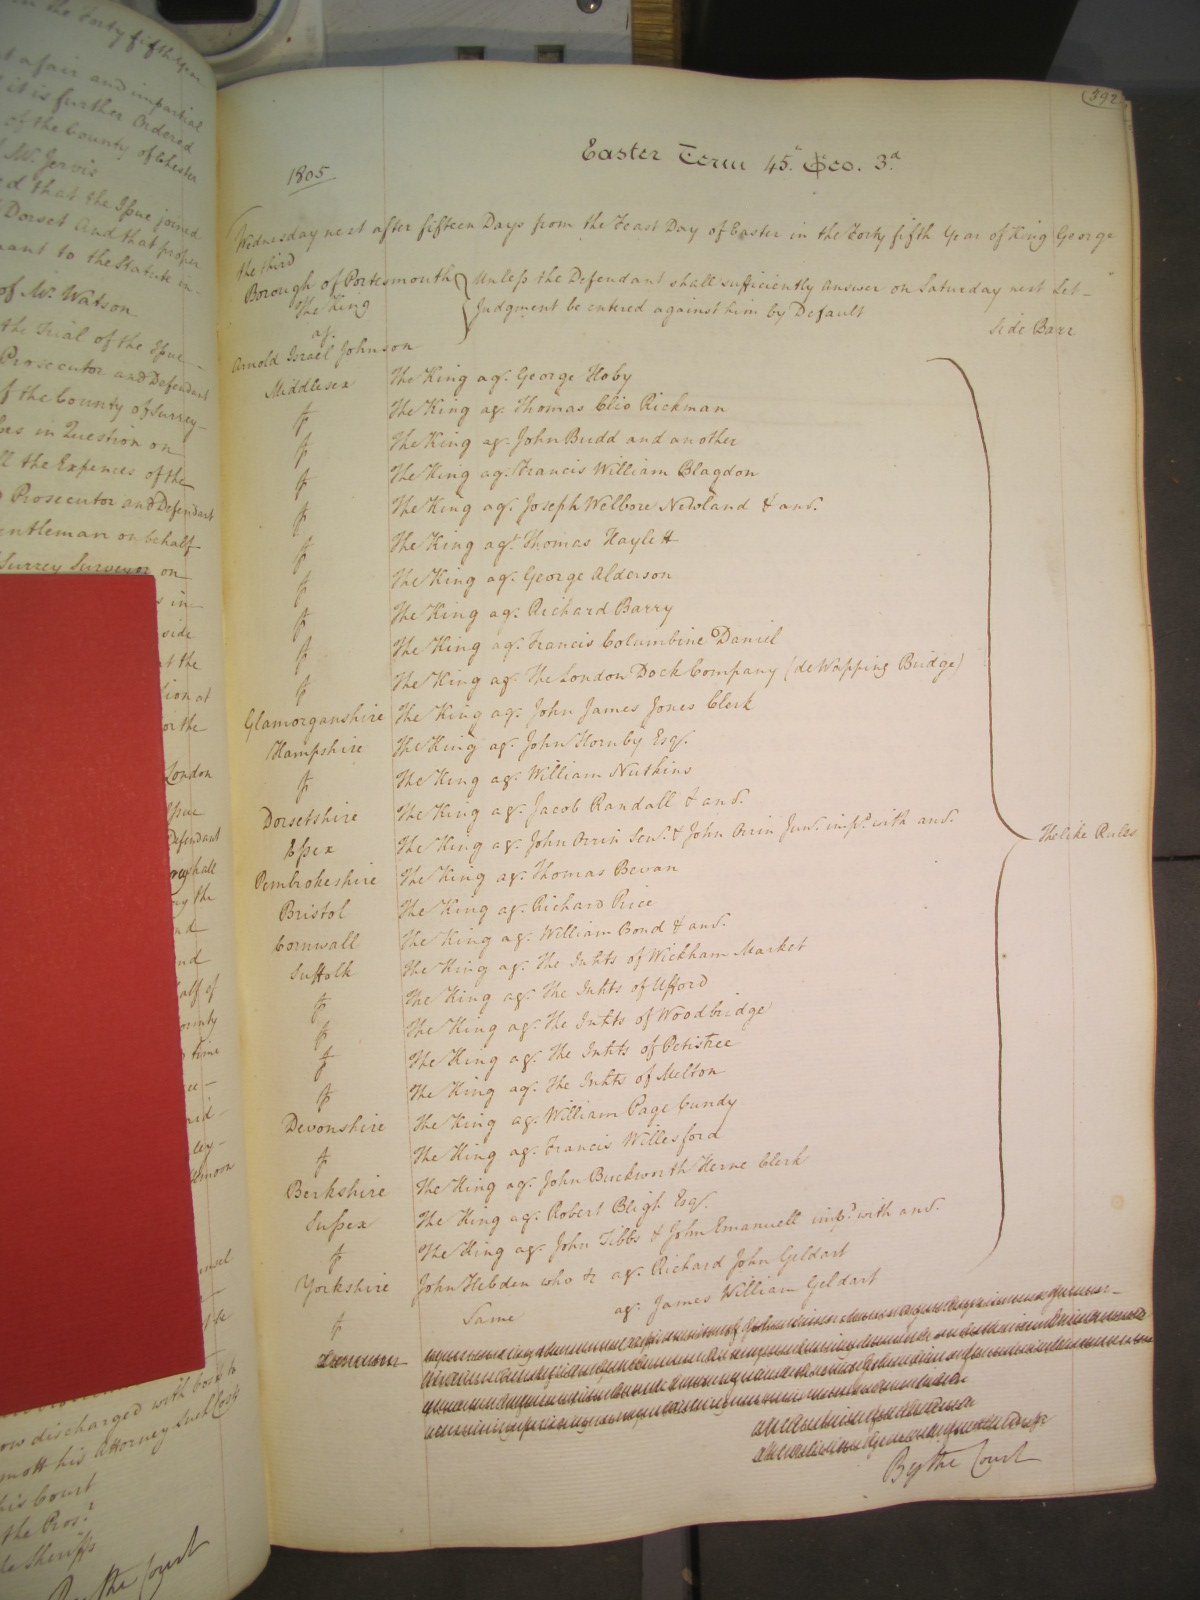 in the Forty fifth Year
t a fair and impartial
it is further Ordered
of the County of Chester
Mr. Jervis
ed that the Issue joined
Dorset And that proper
uant to the Statute in
of Mr. Watson
the Trial of the Issue
Prosecutor and Defendant
f the County of Surrey
ces in Question on
ll the Expences of the
Prosecutor and Defendant
entleman on behalf
Surrey Surveyor on
s in
side
at the
tion at
or the
London
Issue
Defendant
shall
ny the
nd
nd
alf of
ounty
time
ow discharged with Costs to
mott his Attorney such Costs
his Court
the Pros.r
By the Court
392
Easter Term 45.th Geo. 3.d
1805
Wednesday next after fifteen Days from the Feast Day of Easter in the Forty fifth Year of King George
the third
Borough of Portesmouth Unless the Defendant shall sufficiently answer on Saturday next Let
The King Judgment be entered against him by Default
ag.t Side Barr
Arnold Israel Johnson
Middlesex The King ag.t George Hoby
The King ag.t Thomas Clio Rickman
The King ag.t John Budd and another
The King ag.t Francis William Blagdon
The King ag.t Joseph Welbore Newland & anr.
The King ag.t Thomas Haylett
The King ag.t George Alderson
The King ag.t Richard Barry
The King ag.t Francis Columbine Daniel
The King ag.t The London Dock Company (de Wapping Bridge)
Glamorganshire The King ag.t John James Jones Clerk
Hampshire The King ag.t John Hornby Esqr.
The King ag.t William Nutkins
Dorsetshire The King ag.t Jacob Randall & anr.
Essex The King ag.t John Orrin Senr. & John Orrin Junr. imp.d with anr. The like Rules
Pembrokeshire The King ag.t Thomas Bevan
Bristol The King ag.t Richard Price
Cornwall The King ag.t William Bond & anr.
Suffolk The King ag.t The Inhts of Wickham Market
The King ag.t The Inhts of Ufford
The King ag.t The Inhts of Woodbridge
The King ag.t The Inhts of Petistree
The King ag.t The Inhts of Melton
Devonshire The King ag.t William Page Cundy
The King ag.t Francis Willesford
Berkshire The King ag.t John Buckworth Herne Clerk
Sussex The King ag.t Robert Bligh Esqr.
The King ag.t John Tibbs & John Emanuell imp.d with anr.
Yorkshire John Hebden who &c ag.t Richard John Geldart
Same ag.t James William Geldart
By the Court